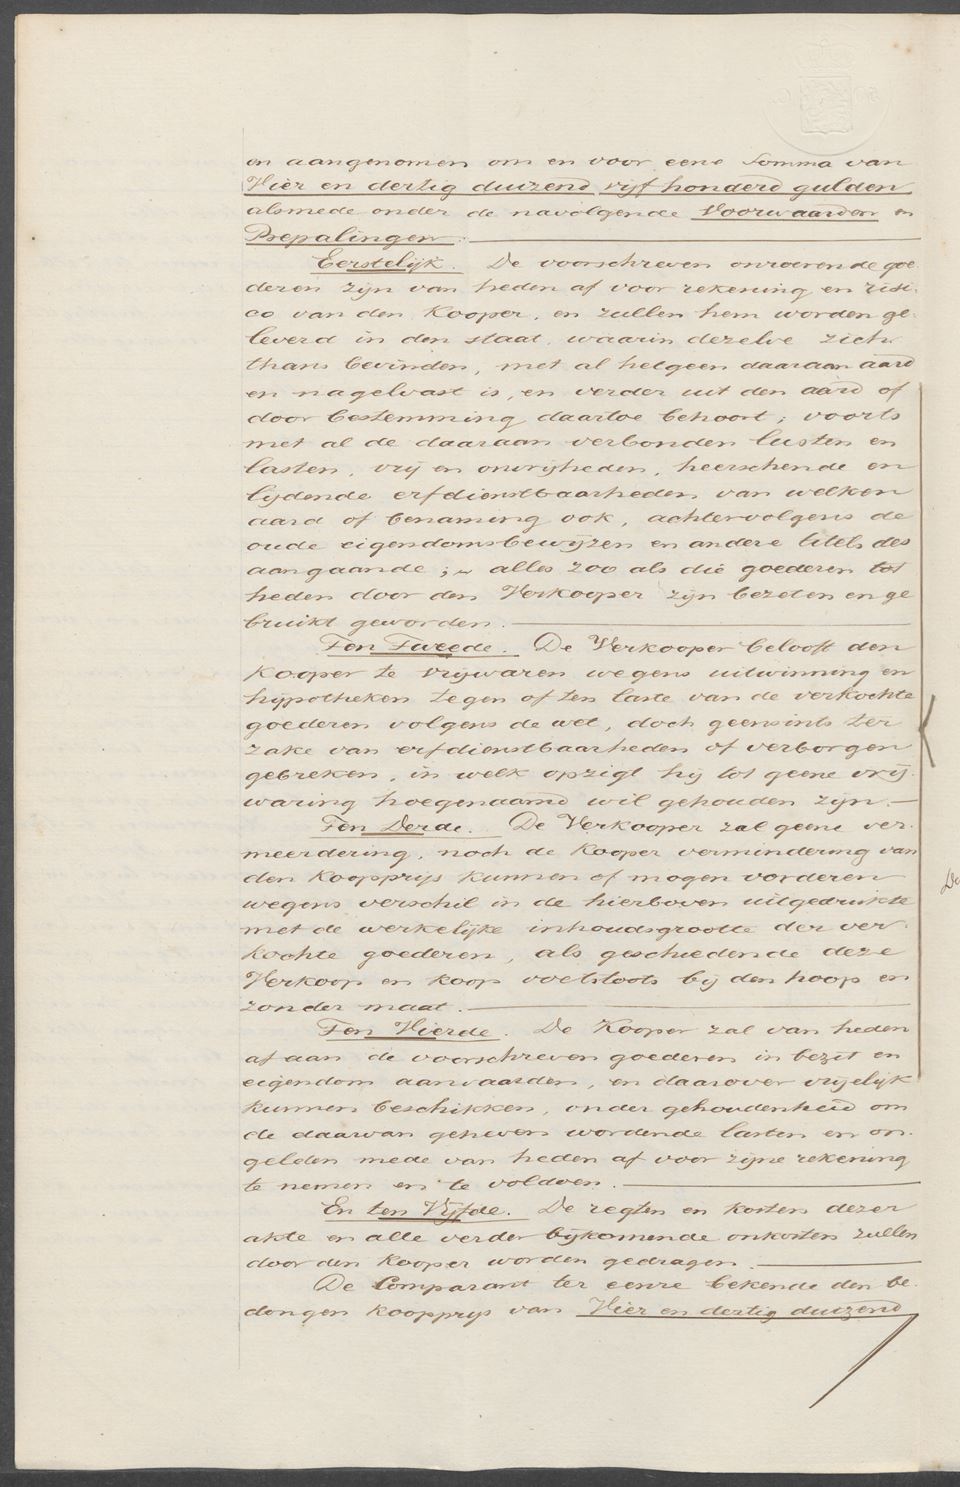 en aangenomen om en voor eene Somma van
Vier en dertig duizend vijf honderd gulden
alsmede onder de navolgende Voorwaarden en
Bepalingen.
Eerstelijk. De voorschreven onroerende goe-
deren zijn van heden af voor rekening en risi-
co van den Kooper, en zullen hem worden ge-
leverd in den staat, waarin dezelve zich
thans bevinden, met al hetgeen daaraan aard
en nagelvast is, en verder uit den aard of
door bestemming daartoe behoort; voorts
met al de daaraan verbonden lusten en
lasten, vrij en onvrijheden, heerschende en
lijdende erfdienstbaarheden van welken
aard of benaming ook, achtervolgens de
oude eigendomsbewijzen en andere titels des
aangaande; en alles zoo als die goederen tot
heden door den Verkooper zijn bezeten en ge
bruikt geworden.
Ten Tweede. De Verkooper belooft den
Kooper te vrijwaren wegens uitwinning en
hijpotheken tegen of ten laste van de verkochte
goederen volgens de wet, doch geensints ter
zake van erfdienstbaarheden of verborgen
gebreken, in welk opzigt hij tot geene vrij-
waring hoegenaamd wil gehouden zijn.
Ten Derde. De Verkooper zal geene ver-
meerdering, noch de Kooper vermindering van
den Koopprijs kunnen of mogen vorderen
wegens verschil in de hierboven uitgedrukte
met de werkelijke inhoudsgrootte der ver-
kochte goederen, als geschiedende deze
Verkoop en koop voetstoots bij den hoop en
zonder maat.
Ten Vierde. De Kooper zal van heden
af aan de voorschreven goederen in bezit en
eigendom aanvaarden, en daarover vrijelijk
kunnen beschikken, onder gehoudenheid om
de daarvan geheven wordende lasten en on-
gelden mede van heden af voor zijne rekening
te nemen en te voldoen.
En ten Vijfde. De regten en kosten dezer
akte en alle verder bijkomende onkosten zullen
door den Kooper worden gedragen.
De Comparant ter eenre bekende den be-
dongen Koopprijs van Vier en dertig duizend